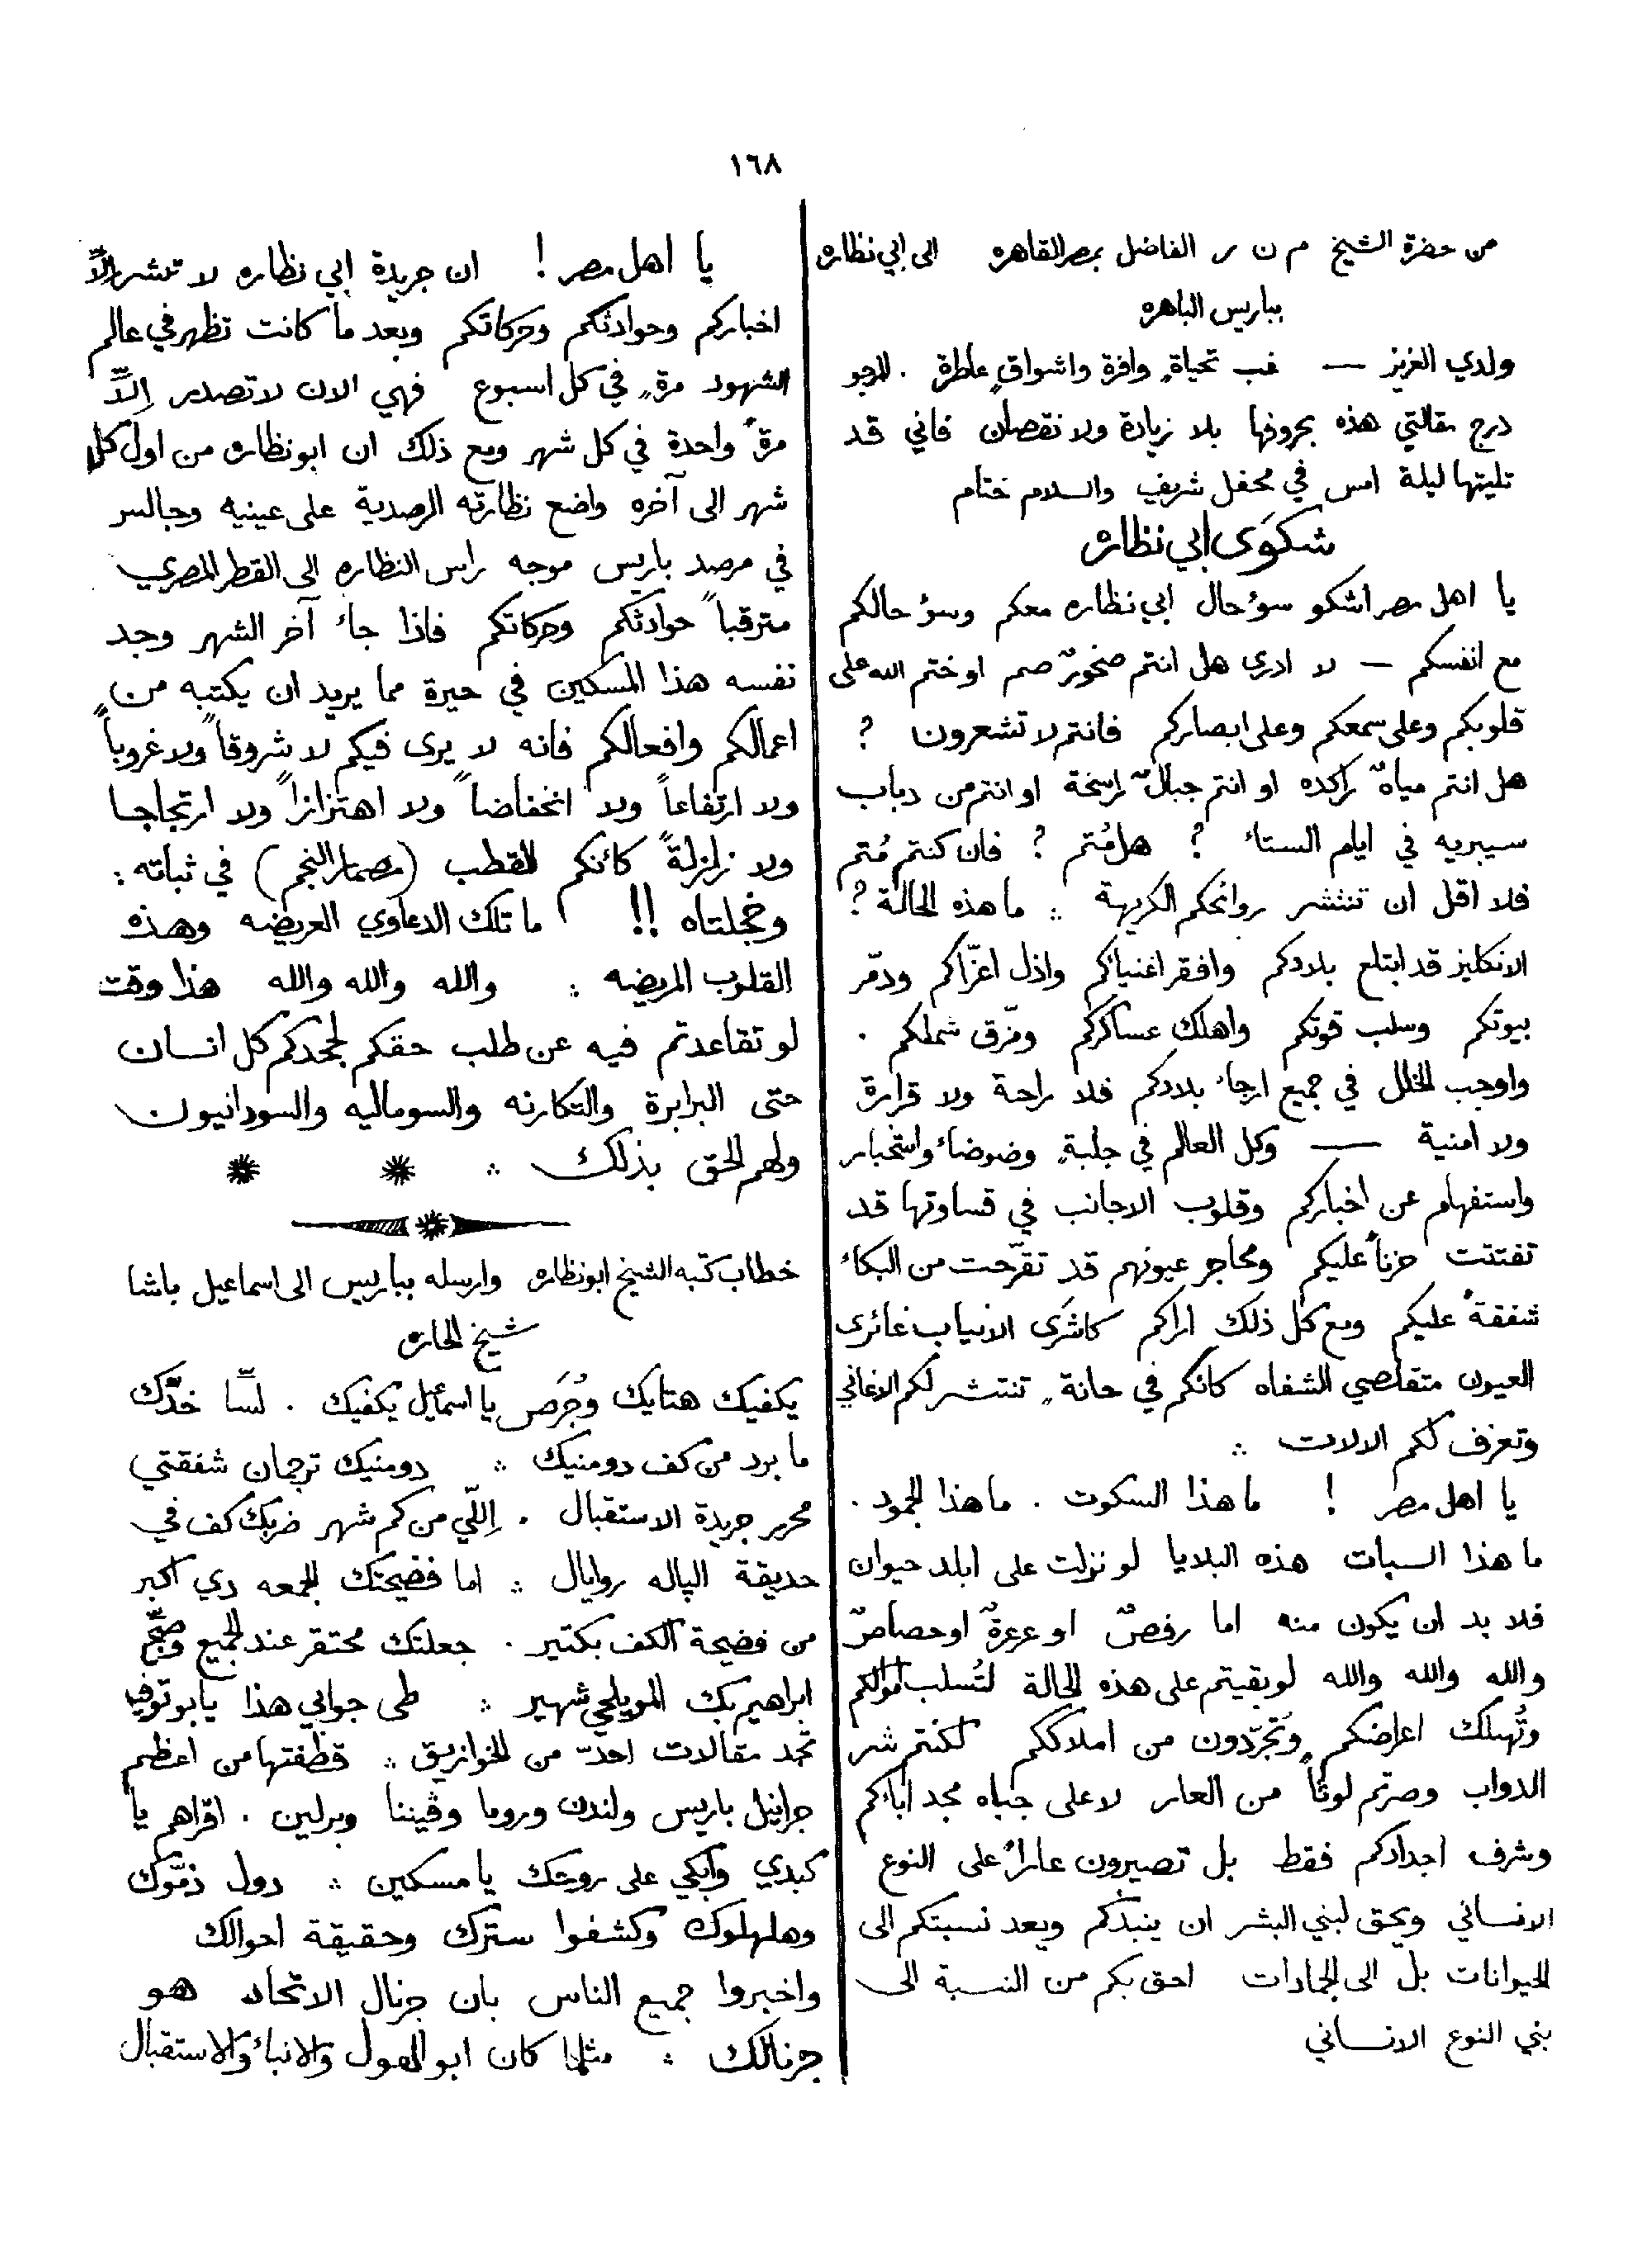 ١٦٨
من حضرة الشيخ م ن ر الفاضل بمصر القاهره الى ابي نظاره
بباريس الباهره
ولدي العزيز — غب تحياةٍ وافرة واشواقٍ عاطرة . المرجو
درج مقالتي هذه بحروفها بلا زيادة ولا نقصان فاني قد
تليتها ليلة امس في محفل شريف والسلام ختام
شكوَى ابي نظاره
يا اهل مصر اشكو سوٴ حال ابي نظاره معكم وسوٴ حالكم
مع انفسكم — لا ادري هل انتم صخورٌ صم او ختم الله على
قلوبكم وعلى سمعكم وعلى ابصاركم فانتم لا تشعرون ؟
هل انتم مياهٌ راكده او انتم جبالٌ راسخة او انتم من دباب
سيبريه في ايام الستاٴ ؟ هل مُتم ؟ فان كنتم مُتم
فلا اقل ان تنتشر روائحكم الكريهة ∴ ما هذه الحالة ؟
الانكليز قد ابتلع بلادكم وافقر اغنياكم واذل اعزّاكم ودمّر
بيوتكم وسلب قوتكم واهلك عساكركم ومزّق شملكم .
واوجب الخلل في جميع ارجاٴ بلادكم فلا راحة ولا قرارة
ولا امنية — وكل العالم في جلبةٍ وضوضاٴ واستخبار
واستفهام عن اخباركم وقلوب الاجانب في قساوتها قد
تفتتت حزناً عليكم ومحاجر عيونهم قد تقرّحت من البكاٴ
شفقةً عليكم ومع كل ذلك اراكم كاشرَى الانياب غائرى
العيون متقلصي الشفاه كانكم في حانةٍ تنتشر لكم الاغاني
وتعزف لكم الالات ∴
يا اهل مصر ! ما هذا السكوت . ما هذا الجمود .
ما هذا السبات هذه البلايا لو نزلت على ابلد حيوان
فلا بد ان يكون منه اما رفصٌ او عرعرةٌ او حصاصٌ
والله والله والله لو بقيتم على هذه الحالة لتُسلب اموالكم
وتُهلك اعراضكم وتُجرّدون من املاككم لكنتم شر
الدواب وصرتم لوثاً من العار لا على جباه مجد اباٴكم
وشرف اجدادكم فقط بل تصيرون عاراً على النوع
الانساني ويحق لبني البشر ان ينبذكم ويعد نسبتكم الى
الحيوانات بل الى الجمادات احق بكم من النسبة الى
بني النوع الانساني
يا اهل مصر ! ان جريدة ابي نظاره لا تنشر الاَّ
اخباركم وحوادثكم وحركاتكم وبعد ما كانت تظهر في عالم
الشهود مرةٍ في كل اسبوع فهي الان لا تصدر اِلاَّ
مرةً واحدة في كل شهر ومع ذلك ان ابو نظاره من اول كل
شهر الى آخره واضع نظارته الرصدية على عينيه وجالس
في مرصد باريس موجه راس النظاره الى القطر المصري
مترقباً حوادثكم وحركاتكم فاذا جاٴ آخر الشهر وجد
نفسه هذا المسكين في حيرة مما يريد ان يكتبه من
اعمالكم وافعالكم فانه لا يرى فيكم لا شروقاً ولا غروباً
ولا ارتفاعاً ولا انخفاضاً ولا اهتزازاً ولا ارتجاجا
ولا زلزلةً كانكم القطب (مصمار النجم) في ثباته :
وخجلتاه !! ما تلك الدعاوي العريضه وهذه
القلوب المريضه : والله والله والله هذا وقت
لو تقاعدتم فيه عن طلب حقكم لجحدكم كل انسان
حتى البرابرة والتكارنه والسوماليه والسودانيون
ولهم الحق بذلك ∴ * *
خطاب كتبه الشيخ ابو نظاره وارسله بباريس الى اسماعيل باشا
شيخ الحاره
يكفيك هتايك وجُرَص يا اسمعيل يكفيك . لسّا خدّك
ما برد من كف دومنيك ∴ دومنيك ترجمان شفقتي
محرر جريدة الاستقبال . اِللّي من كم شهر ضربك كف في
حديقة الپاله روايال ∴ اما فضيحتك الجمعه دي اكبر
من فضيحة الكف بكتير . جعلتك محتقر عند الجميع
ابراهيم بك المويلحي شهير ∴ طى جوابي هذا يا بو توفيق
تجد مقالات احدّ من الخوازيق ∴ قطفتها من اعظم
جرانيل باريس ولندن وروما وڤيننا وبرلين . اقراهم يا
كبدي وابكي على روحك يا مسكين ∴ دول ذمّوك
وهلهلوك وكشفوا سترك وحقيقة احوالك
واخبروا جميع الناس بان جرنال الاتحاد هو
جرنالك : مثلما كان ابو الهول والانباٴ والاستقبال